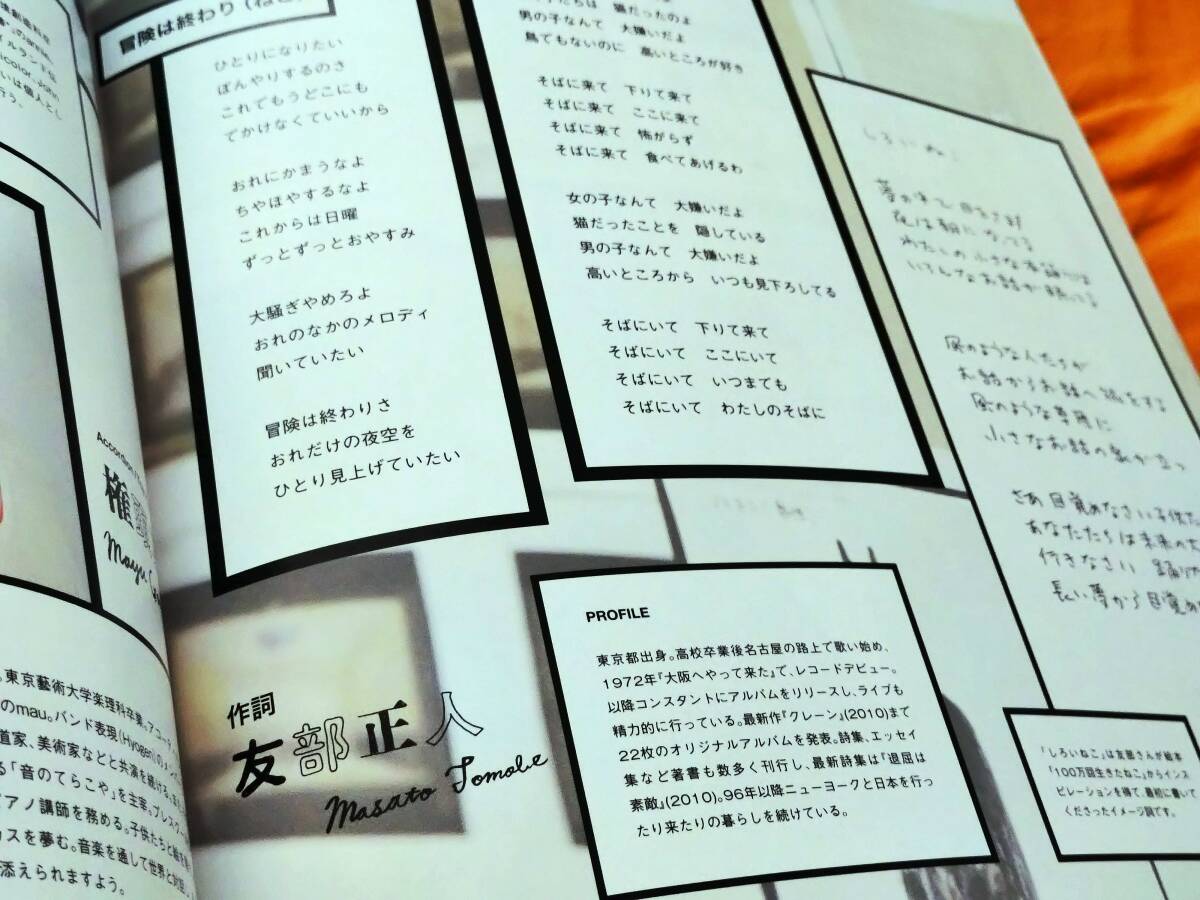 冒険は終わり
ひとりになりたい
ぼんやりするのさ
これでもうどこにも
でかけなくていいから
おれにかまうなよ
ちやほやするなよ
これからは日曜
ずっとずっとおやすみ
大騒ぎやめろよ
おれのなかのメロディ
聞いていたい
冒険は終わりさ
おれだけの夜空を
ひとり見上げていたい
猫だったのよ
男の子なんて 大嫌いだよ
鳥でもないのに 高いところが好き
そばに来て 下りて来て
そばに来て ここに来て
そばに来て 怖がらず
そばに来て 食べてあげるわ
女の子なんて 大嫌いだよ
猫だったことを 隠している
男の子なんて 大嫌いだよ
高いところから いつも見下ろしてる
そばにいて 下りて来て
そばにいて ここにいて
そばにいて いつまでも
そばにいて わたしのそばに
しろいねこ
夜は朝になってる
わたしの小さな本棚には
いろんなお話が眠ってる
風のような人たちが
お話からお話へ旅をする
風のような草原に
さあ目覚めなさい子供た
あなたたちは未来の
行きなさい
長い夢から目覚め
作詞
友部正人
Masato Tomobe
PROFILE
東京都出身。高校卒業後名古屋の路上で歌い始め、
1972年『大阪へやって来た』で、レコードデビュー。
以降コンスタントにアルバムをリリースし、ライブも
精力的に行っている。最新作『クレーン』(2010)まで
22枚のオリジナルアルバムを発表。詩集、エッセイ
集など著書も数多く刊行し、最新詩集は『退屈は
素敵』(2010)。96年以降ニューヨークと日本を行っ
たり来たりの暮らしを続けている。
「しろいねこ」は友部さんが絵本
「100万回生きたねこ」からインス
ピレーションを得て、最初に書いて
くださったイメージ詞です。
東京藝術大学楽理科卒業。アコーディ
のmau。バンド表現(Hyogen)の
道家、美術家などと共演を続ける。
る「音のてらこや」を主宰。プレスクー
ピアノ講師を務める。子供たちと
カスを夢む。音楽を通して世界と対話し
添えられますよう。